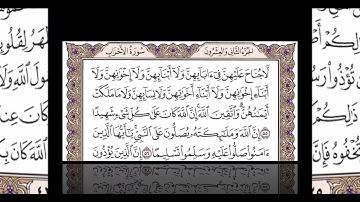 الجزء الثاني والعشرون سورة الأحزاب
لَّا جُنَاحَ عَلَيْهِنَّ فِىٓ ءَابَآئِهِنَّ وَلَآ أَبْنَآئِهِنَّ وَلَآ إِخْوَٰنِهِنَّ وَلَآ
أَبْنَآءِ إِخْوَٰنِهِنَّ وَلَآ أَبْنَآءِ أَخَوَٰتِهِنَّ وَلَا نِسَآئِهِنَّ وَلَا مَا مَلَكَتْ
أَيْمَٰنُهُنَّ ۗ وَٱتَّقِينَ ٱللَّهَ ۚ إِنَّ ٱللَّهَ كَانَ عَلَىٰ كُلِّ شَىْءٍ شَهِيدًا
٥٥ إِنَّ ٱللَّهَ وَمَلَٰٓئِكَتَهُۥ يُصَلُّونَ عَلَى ٱلنَّبِىِّ ۚ يَٰٓأَيُّهَا ٱلَّذِينَ
ءَامَنُوا۟ صَلُّوا۟ عَلَيْهِ وَسَلِّمُوا۟ تَسْلِيمًا ٥٦ إِنَّ ٱلَّذِينَ يُؤْذُونَ